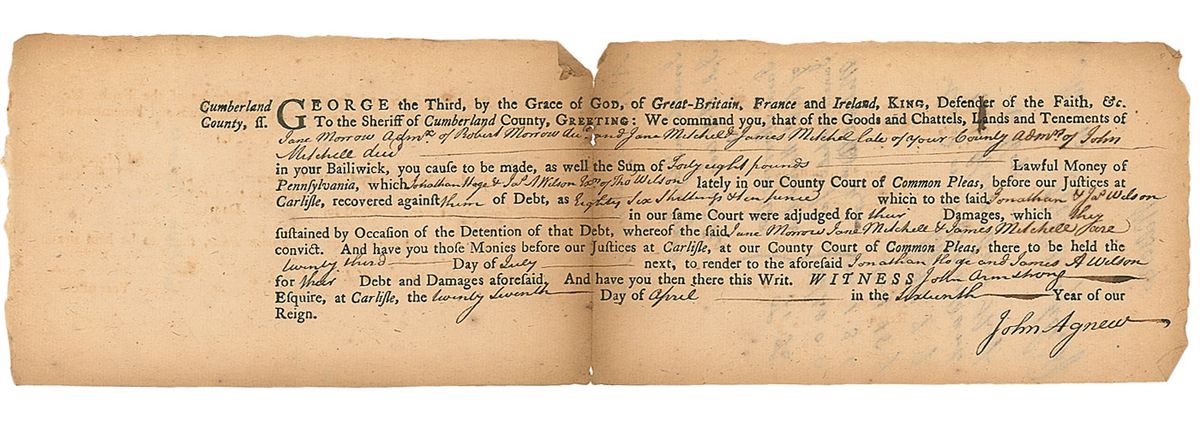 Cumberland County, ss. GEORGE the Third, by the Grace of GOD, of Great-Britain, France and Ireland, KING, Defender of the Faith, &c.
To the Sheriff of Cumberland County, GREETING: We command you, that of the Goods and Chattels, Lands and Tenements of
Jane Morrow Admrx. of Robert Morrow decd. and Jane Mitchel & James Mitchel late of your County Admrs of John
Mitchell decd
in your Bailiwick, you cause to be made, as well the Sum of Forty eight pounds Lawful Money of
Pennsylvania, which Jonathan Hoge & Jas. A Wilson Exrs of Tho Wilson lately in our County Court of Common Pleas, before our Justices at
Carlisle, recovered against them of Debt, as Eighty Six Shillings & ten pence which to the said Jonathan & Jas Wilson
in our same Court were adjudged for their Damages, which they
sustained by Occasion of the Detention of that Debt, whereof the said Jane Morrow Jane Mitchell & James Mitchell are
convict. And have you those Monies before our Justices at Carlisle, at our County Court of Common Pleas, there to be held the
twenty third Day of July next, to render to the aforesaid Jonathan Hoge and James A Wilson
for their Debt and Damages aforesaid. And have you then there this Writ. WITNESS John Armstrong
Esquire, at Carlisle, the twenty seventh Day of April in the sixteenth Year of our
Reign.
John Agnew